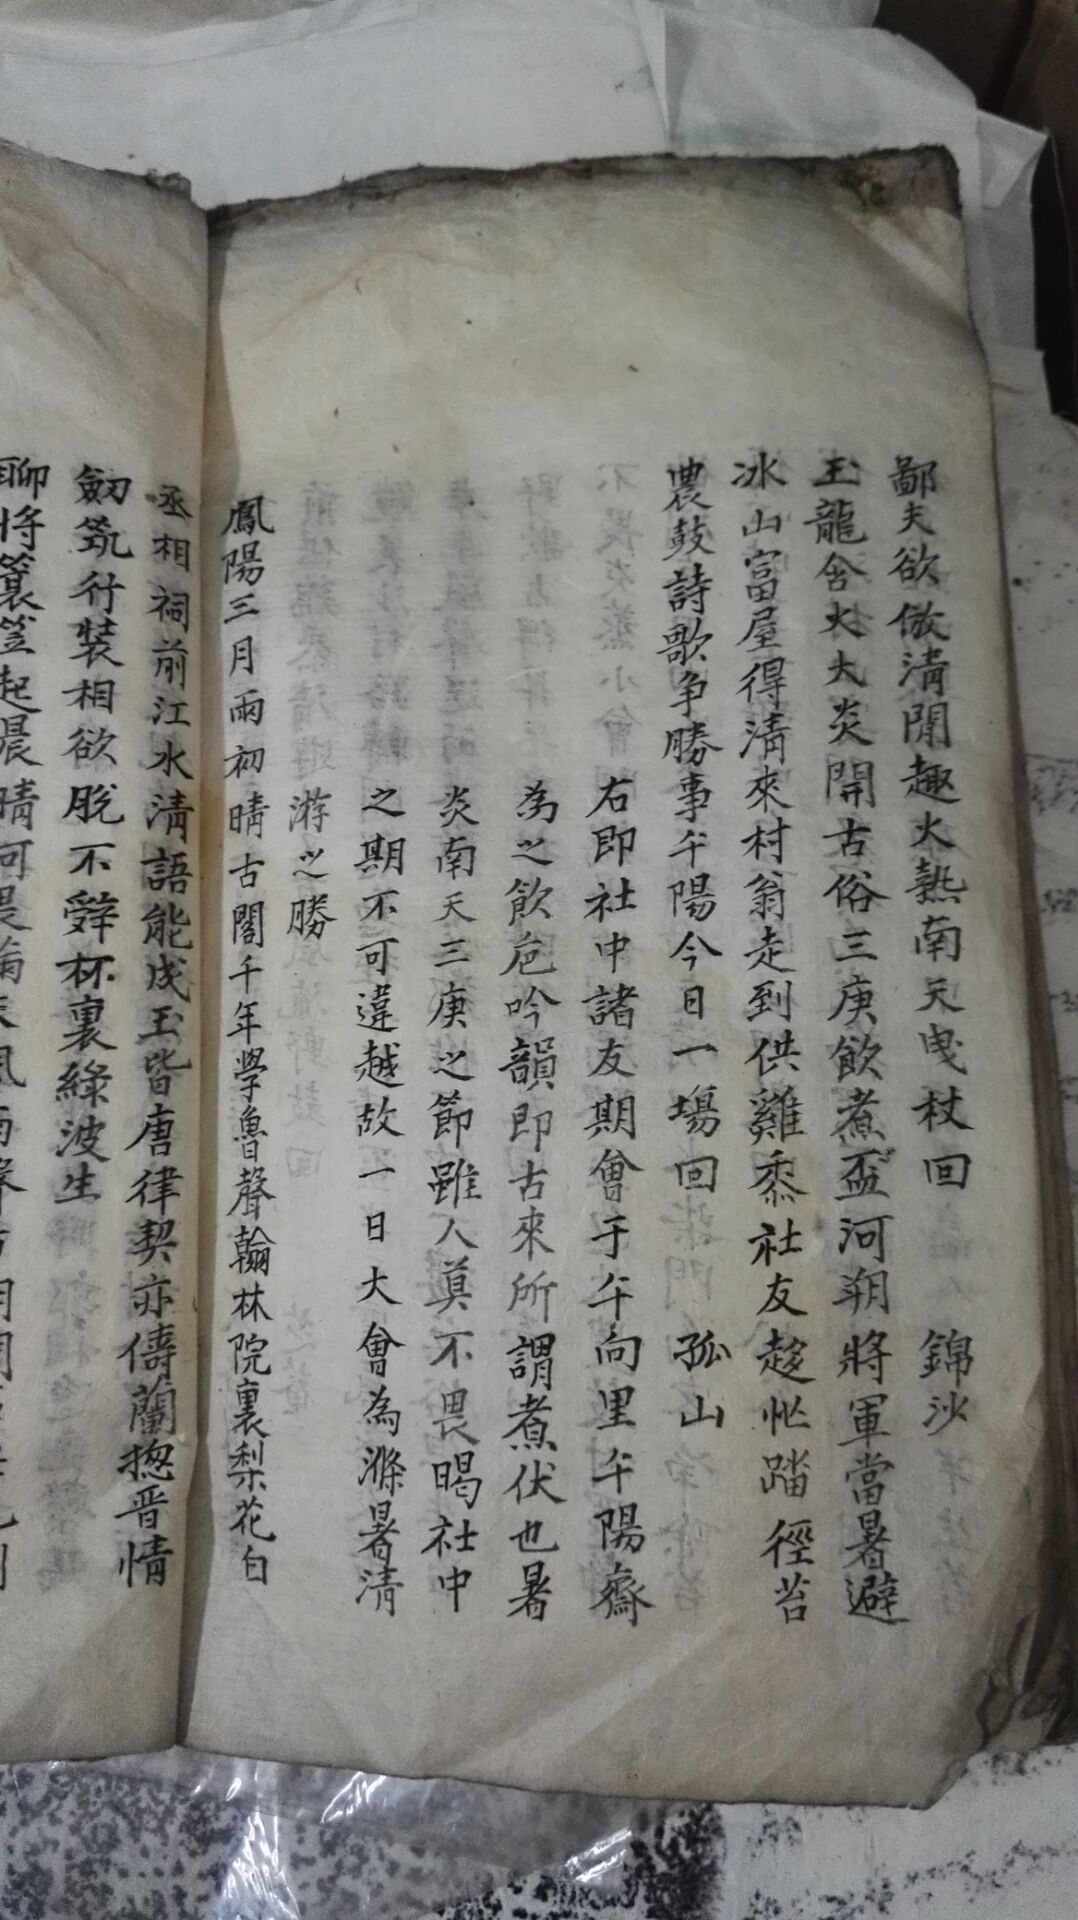 鄙夫欲倣淸閒趣火熱南天曳杖回 錦沙
玉龍含火大炎開古俗三庚飮煮盃河朔將軍當暑避
冰山富屋得淸來村翁走到供雞黍社友趍忙踏徑苔
農鼓詩歌争勝事午陽今日一場回 孤山
右即社中諸友期會于午向里午陽齋
為之飮巵吟韻即古來所謂煮伏也暑
炎南天三庚之節雖人莫不畏暍社中
之期不可違越故一日大會為滌暑淸
游之勝
鳳陽三月雨初晴古閣千年學魯聲翰林院裏梨花白
丞相祠前江水淸語能成玉皆唐律契亦儔蘭揔晋情
劒筑行裝相欲脫不辤杯裏綠波生
聊將簑笠起晨晴可畏